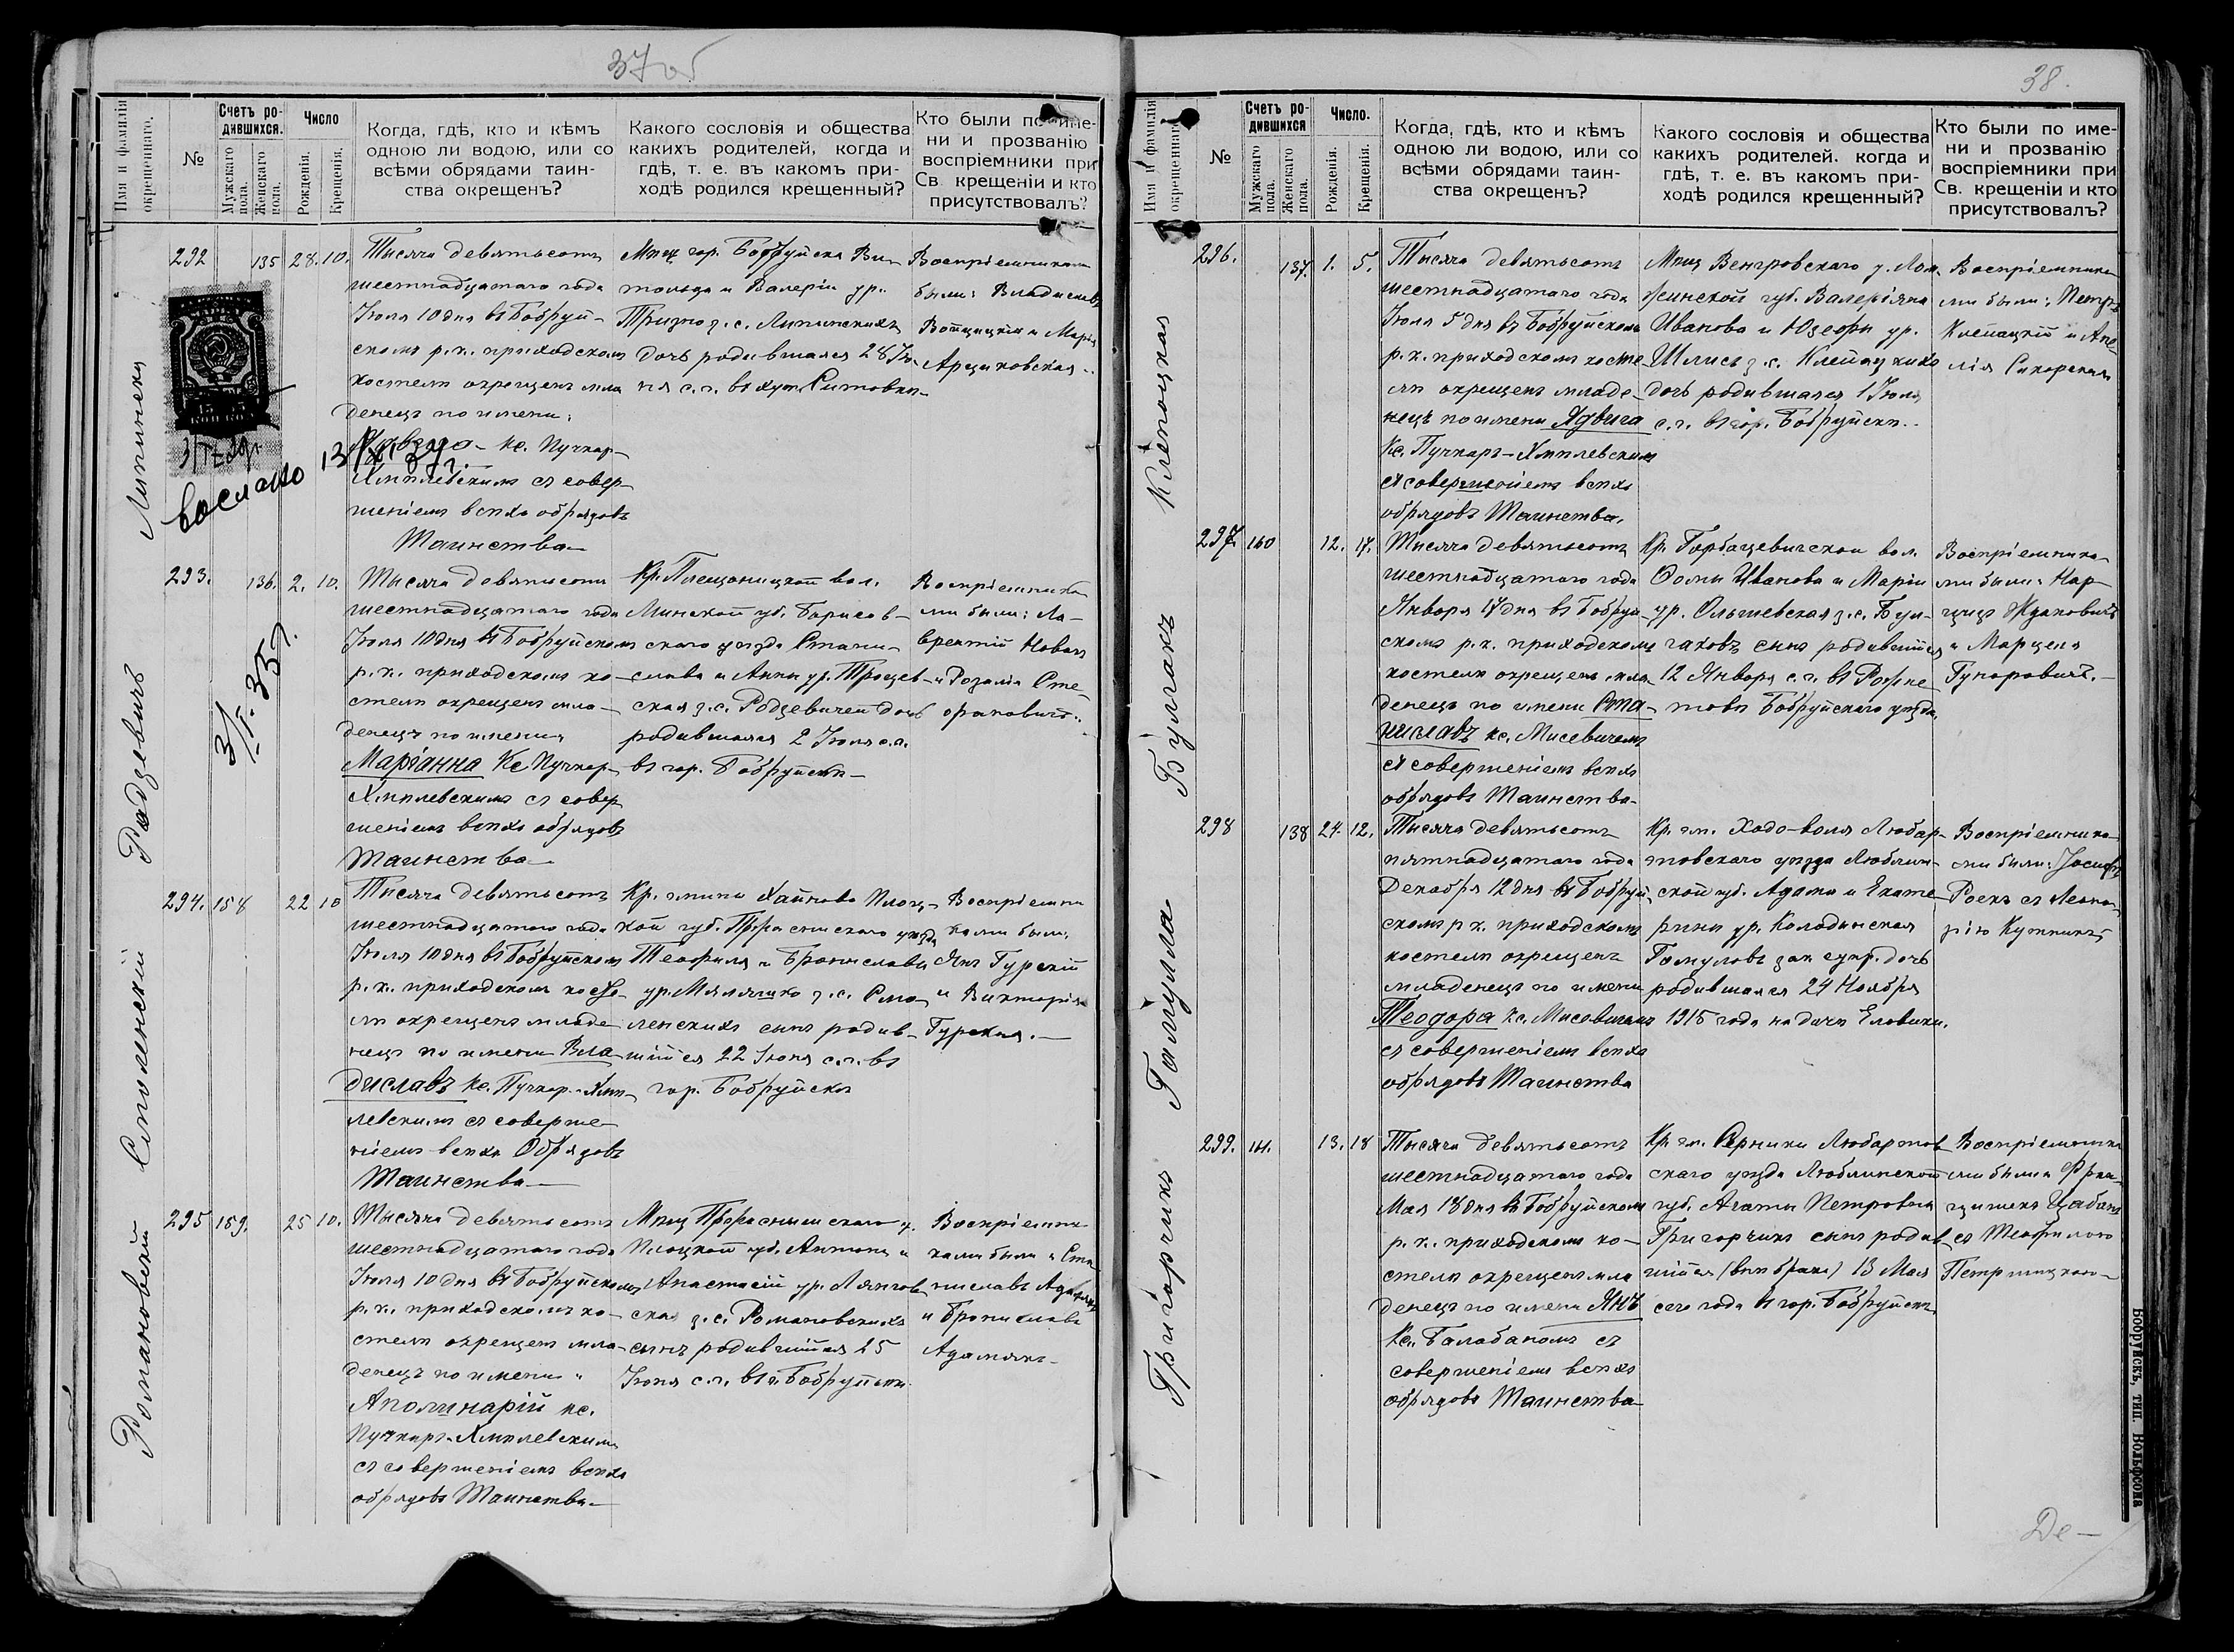 37 об
Имя и фамилія окрещеннаго.
№
Счетъ ро-
дившихся.
Мужскаго пола.
Женскаго пола.
Число
Рожденія.
Крещенія.
Когда, гдѣ, кто и кѣмъ
одною ли водою, или со
всѣми обрядами таин-
ства окрещенъ?
Какого сословія и общества
какихъ родителей, когда и
гдѣ, т. е. въ какомъ при-
ходѣ родился крещенный?
Кто были по име-
ни и прозванію
воспріемники при
Св. крещеніи и кто
присутствовалъ?
Липински
292
135
28.
10.
Тысяча девятьсотъ
шестнадцатаго года
Іюля 10 дня въ Бобруй-
скомъ р.к. приходскомъ
костелѣ окрещенъ мла
денецъ по имени:
кс. Пучкар-
Хмѣлевскимъ съ совер-
шеніемъ всѣхъ обрядовъ
Таинства
Мѣщ. гор. Бобруйска Ви-
тольда и Валеріи ур.
Тризно з.с. Липинскихъ
дочь родившаяся 28 Ію-
ня с.г. въ хут. Ситовки
Воспріемниками
были: Владиславъ
Войцицкій и Марія
Арциховская
15 15
КОП. КОП.
3/IX 29г.
выслано 13/XI 37 г.
Радзевичъ
293.
136.
2.
10.
Тысяча девятьсотъ
шестнадцатаго года
Іюля 10 дня въ Бобруйскомъ
р.к. приходскомъ ко-
стелѣ окрещенъ мла-
денецъ по имени
Маріанна Кс Пучкар-
Хмѣлевскимъ съ совер
шеніемъ всѣхъ обрядовъ
Таинства
Кр. Плещеницкой вол.
Минской губ. Борисов-
скаго уѣзда Стани-
слава и Анны ур. Троцев-
ская з.с. Родзевичей дочь
родившаяся 2 Іюля с.г.
въ гор. Бобруйскѣ
Воспріемника
ми были: Ла-
врентій Новакъ
и Розалія Сте-
фановичъ.
3/I. 35 г.
Смоленскій
294.
158
22
10
Тысяча девятьсотъ
шестнадцатаго года
Іюля 10 дня въ Бобруйскомъ
р.к. приходскомъ косте-
лѣ окрещенъ младе
нецъ по имени Вла
диславъ кс. Пучкар.-Хмѣ-
левскимъ съ соверше
ніемъ всѣхъ Обрядовъ
Таинства
Кр. гмины Хайново Плоц-
кой губ. Прраснишскаго уѣзда
Теофиля и Брониславы
ур. з.с. Смо-
ленскихъ сынъ родив-
шійся 22 Іюня с.г. въ
гор. Бобруйскѣ
Воспріемни
ками были:
Янъ Гурскій
и Викторія
Гурская.
Романовскій
295
159.
25
10.
Тысяча девятьсотъ
шестнадцатаго года
Іюля 10 дня въ Бобруйскомъ
р.к. приходскомъ ко-
стелѣ окрещенъ мла-
денецъ по имени
Аполинарій кс.
Пучкаръ-Хмѣлевскимъ
съ совершеніемъ всѣхъ
обрядовъ Таинства
Мѣщ. Прраснишскаго у.
Плоцкой губ. Антона и
Анастасіи ур.
ская з.с. Романовскихъ
сынъ родившійся 25
Іюня с.г. въ г. Бобруйскѣ
Воспріемни
ками были: Ста
ниславъ Адамякъ
и Бронислава
Адамякъ
38.
Имя и фамилія окрещеннаго
№
Счетъ ро-
дившихся
Мужскаго пола.
Женскаго пола.
Число.
Рожденія.
Крещенія.
Когда, гдѣ, кто и кѣмъ
одною ли водою, или со
всѣми обрядами таин-
ства окрещенъ?
Какого сословія и общества
какихъ родителей. когда и
гдѣ, т. е. въ какомъ при-
ходѣ родился крещенный?
Кто были по име-
ни и прозванію
воспріемники при
Св. крещеніи и кто
присутствовалъ?
296.
137.
1.
5.
Тысяча девятьсотъ
шестнадцатаго года
Іюля 5 дня въ Бобруйскомъ
р.к. приходскомъ косте
лѣ окрещенъ младе-
нецъ по имени Ядвига
Кс. Пучкаръ-Хмѣлевскимъ
съ совершеніемъ всѣхъ
обрядовъ Таинства.
Мѣщ. Венгровскаго у. Лом-
жинской губ. Валеріяна
Иванова и Юзефы ур.
з.с.
дочь родившаяся 1 Іюля
с.г. въ гор. Бобруйскѣ.
Воспріемника
ми были: Петръ
и Апо-
лія Сикорская
Булгакъ
297.
160
12.
17.
Тысяча девятьсотъ
шестнадцатаго года
Января 17 дня въ Бобруй-
скомъ р.к. приходскомъ
костелѣ окрещенъ мла-
денецъ по имени Ста-
ниславъ кс. Мисевичемъ
съ совершеніемъ всѣхъ
обрядовъ Таинства
Кр. Горбацевичской вол.
Ѳомы Иванова и Маріи
ур. Ольшевская з.с. Бул-
гаковъ сынъ родившійся
12 Января с.г. въ
Бобруйскаго уѣзда.
Воспріемника
ми были: Нар-
цизъ Ждановичъ
и Марцеля
Гунаровичъ.
Гамула
298
138
24.
12.
Тысяча девятьсотъ
пятнадцатаго года
Декабря 12 дня въ Бобруй-
скомъ р к. приходскомъ
костелѣ окрещенъ
младенецъ по имени
Теодора Кс. Мисевичемъ
съ совершеніемъ всѣхъ
обрядовъ Таинства
Кр. гм. Любар-
товскаго уѣзда Люблин-
ской губ. Адама и Екате-
рины ур. Колодинская
Гамуловъ зак. супр. дочь
родившаяся 24 Ноября
1915 года на дачѣ Еловики.
Воспріемника
ми были: Іосифъ
съ Леока
дію
Григорчикъ
299.
161.
13.
18
Тысяча девятьсотъ
шестнадцатаго года
Мая 18 дня въ Бобруйскомъ
р.к. приходскомъ ко-
стелѣ окрещенъ мла
денецъ по имени Янъ
Кс. Балабаномъ съ
совершеніемъ всѣхъ
обрядовъ Таинства
Кр. гм. Серники Любартов
скаго уѣзда Люблинской
губ. Агаты Петровны
Григорчикъ сынъ родив
шійся (внѣ брака) 13 Мая
сего года въ гор. Бобруйскѣ
Воспріемника
ми были: Фран-
цишекъ Цабанъ
съ Теофилою
Бобруйскъ, тип. Вольфсона
Де-